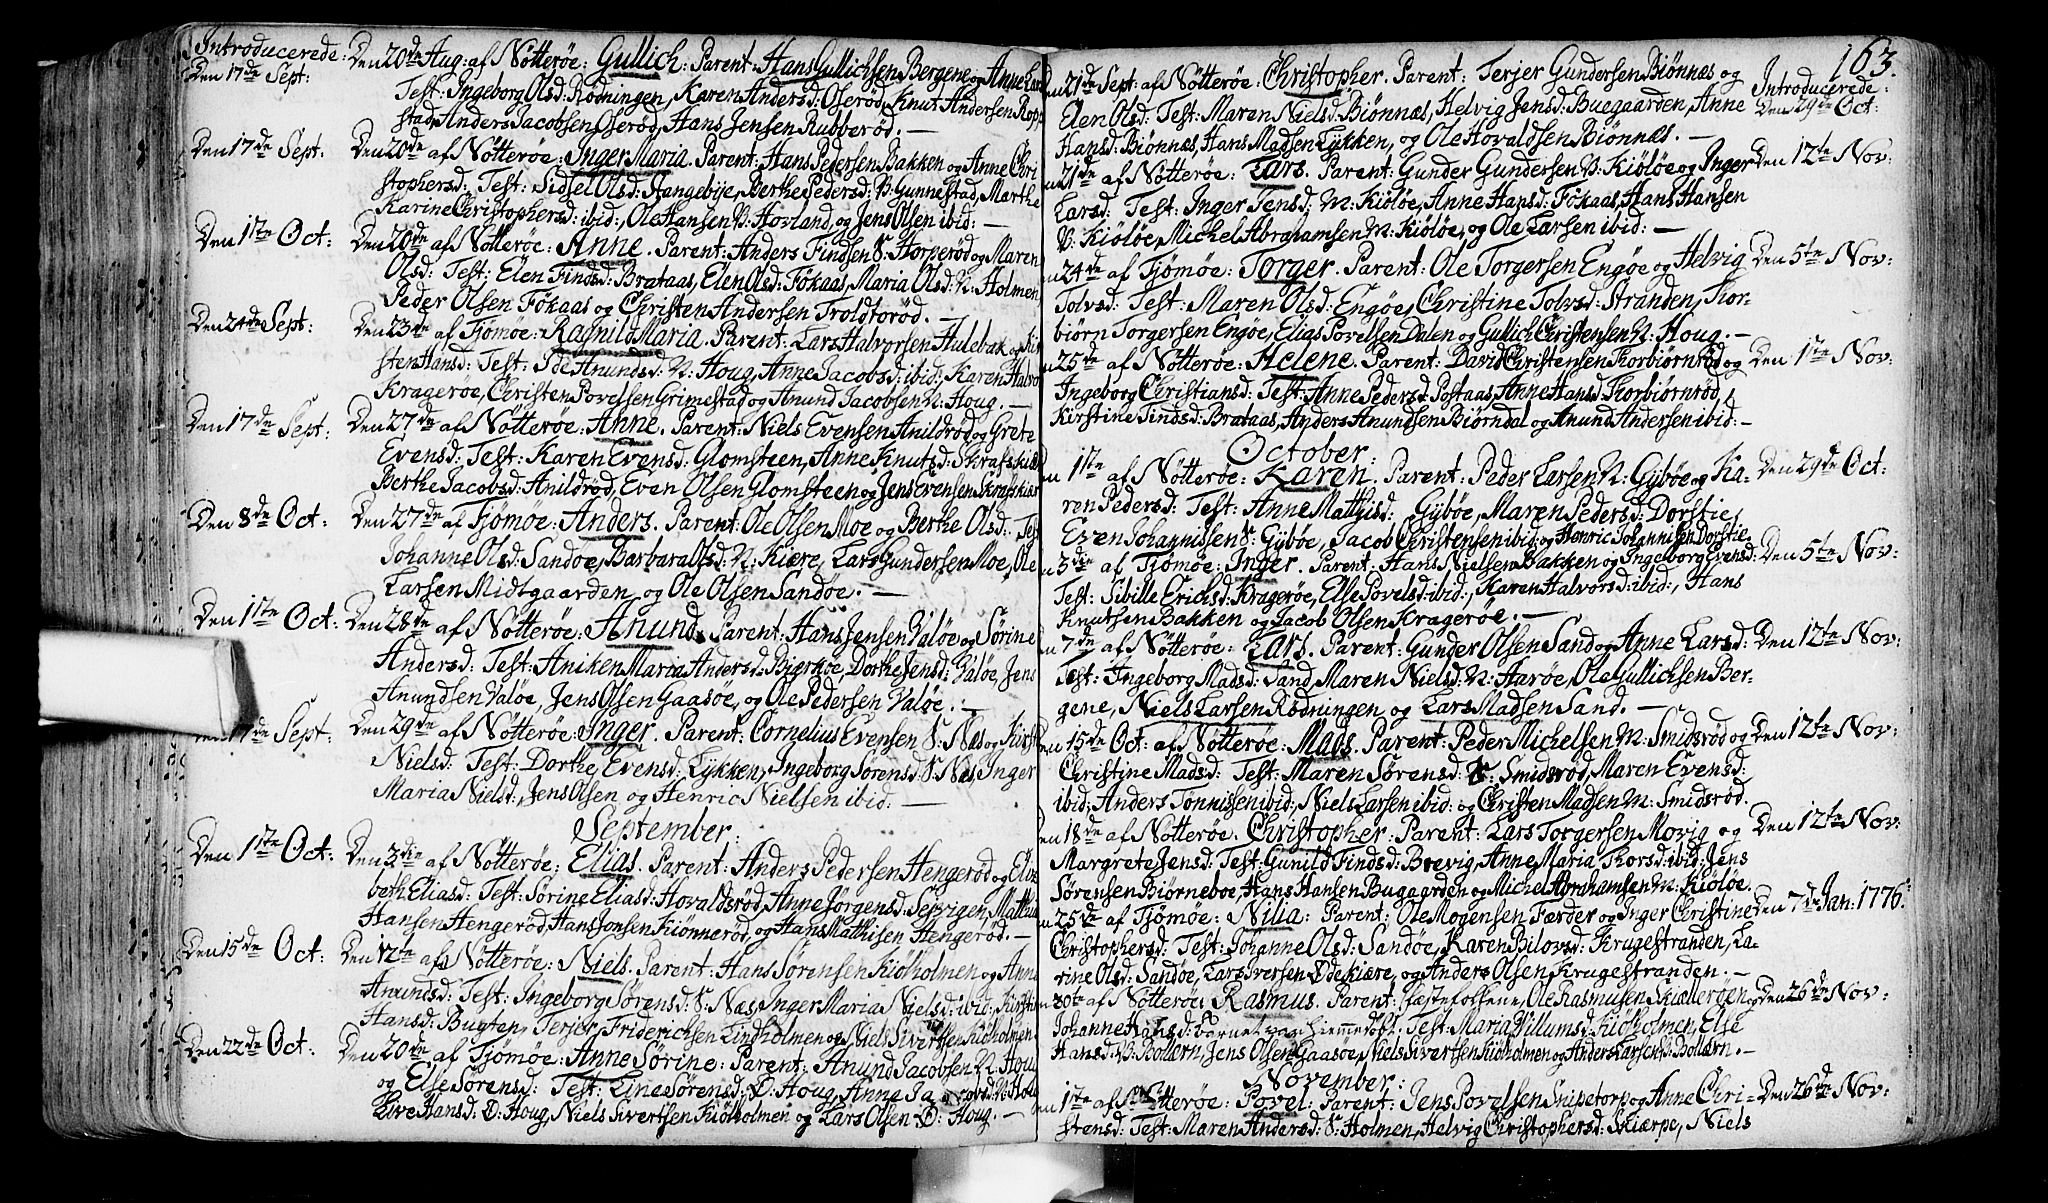 Introducerede: Den 20de Aug: af Nötterøe: Gullich: Parent: Hans Gullichsen Bergene og Anne Lars
Den 17de Sept:
Test: Ingeborg Olsd: Rødningen, Karen Andersd: Oserød, Knut Andersen Ropp
stad, Anders Jacobsen Oserød, Hans Jensen Rubberød. —
Den 17de Sept: Den 20de af Nötterøe: Inger Maria. Parent: Hans Pedersen Bakken og Anne Chri
stophersd: Test: Sidsel Olsd: Hangebye, Berthe Pedersd: V: Gunnestad, Marthe
Karine Christophersd: ibid:, Ole Hansen V: Hovland, og Jens Olsen ibid: —
Den 1ste Oct: Den 20de af Nötterøe: Anne. Parent: Anders Findsen S: Horperød og Maren
Olsd: Test: Elen Findsd: Brataas, Elen Olsd: Fökaas, Maria Olsd: N: Holmen,
Peder Olsen Fökaas og Christen Andersen Troldtorød. —
Den 24de Sept: Den 23de af Tjømøe: Ragnild Maria. Parent: Lars Halvorsen Hulebak og Kir
sten Hansd: Test: Ide Anundsd: N: Houg, Anne Jacobsd: ibid: Karen Halvo
Kragerøe, Christen Povelsen Grimestad og Anund Jacobsen N: Houg. —
Den 17de Sept: Den 27de af Nötterøe: Anne. Parent: Niels Evensen Anildrød og Grete
Evensd: Test: Karen Evensd: Glomsteen, Anne Knutsd: Skrafskiær
Berthe Jacobsd: Anildrød, Even Olsen Glomsteen og Jens Evensen Skrafskiær
Den 8de Oct: Den 27de af Tjømøe: Anders. Parent: Ole Olsen Moe og Berthe Olsd: Test
Johanne Olsd: Sandøe, Barbara Olsd: N: Kiære, Lars Gundersen Moe, Ole
Larsen Midtgaarden og Ole Olsen Sandøe. —
Den 1ste Oct: Den 28de af Nötterøe: Anund. Parent: Hans Jensen Valøe og Sørine
Andersd: Test: Aniken Maria Andersd: Bierkøe, Dorthe Jensd: Valøe, Jens
Anundsen Valøe, Jens Olsen Gaasøe, og Ole Pedersen Valøe. —
17de Sept: Den 29de af Nötterøe: Inger. Parent: Cornelius Evensen S: Næs og Kirst
Nielsd: Test: Dorthe Evensd: Lykken, Ingeborg Sørensd: S: Næs, Inger
Maria Nielsd:, Jens Olsen og Henric Nielsen ibid. —
September:
Den 1ste Oct: Den 3die af Nötterøe: Elias. Parent: Anders Pedersen Hengerød og Eliz
beth Eliasd: Test: Sørine Eliasd: Hovaldsrød, Anne Jørgensd: Selvigen, Mathis
Hansen Hengerød, Hans Jonsen Kiønnerød, og Hans Mathisen Hengerød. —
Den 15de Oct: Den 12te af Nötterøe: Niels. Parent: Hans Sørensen Kiøholmen og Anne
Anundsd: Test: Ingeborg Sørensd: S: Næs, Inger Maria Nielsd: ibid: Kirstin
Hansd: Bugten, Terjer Friderichsen Lindholmen og Niels Sivertsen Kiøholmen
Den 22de Oct: Den 20de af Tjømøe: Anne Sørine: Parent: Anund Jacobsen N: Houg
og Else Sørensd: Test: Line Sørensd: Ø: Houg, Anne Ja cobsd: N: Houg
Live Hansd: Ø: Houg, Niels Sivertsen Kiøholmen og Lars Olsen Ø: Houg. —
163.
21de Sept: af Nötterøe: Christopher. Parent: Terjer Gundersen Biønnæs og Introducerede:
Elen Olsd: Test: Maren Nielsd: Biønnæs, Helvig Jensd: Buegaarden, Anne Den 29de Oct:
Hansd: Biønnæs, Hans Madsen Lykken, og Ole Hovaldsen Biønnæs. —
21de af Nötterøe: Lars. Parent: Gunder Gundersen V: Kiöløe og Inger Den 12te Nov:
Larsd: Test: Inger Jensd: N: Kiöløe, Anne Hansd: Fökaas, Hans Hansen
V: Kiöløe, Michel Abrahamsen N: Kiöløe, og Ole Larsen ibid: —
24de af Tjømøe: Torger. Parent: Ole Torgersen Engøe og Helvig Den 5te Nov:
Tolvsd: Test: Maren Olsd: Engøe, Christine Tolvsd: Stranden, Thor-
biørn Torgersen Engøe, Elias Povelsen Dalen og Gullich Christensen N: Houg. —
25de af Nötterøe: Helene. Parent: David Christensen Thorbiørnrød og Den 1ste Nov:
Ingeborg Christiansd: Test: Anne Pedersd: Postaas, Anne Hansd: Thorbiørnrød,
Kirstine Findsd: Brataas, Anders Anundsen Biørndal og Anund Andersen ibid: —
October:
1ste af Nötterøe: Karen. Parent: Peder Larsen N: Gyböe og Ka- Den 29de Oct:
ren Pedersd: Test: Anne Mathisd: Gyböe, Maren Pedersd: Dorstie,
Even Johannissen S: Gyböe, Jacob Christensen ibid: og Henric Johannisen Dorstie
3die af Tjømøe: Inger. Parent: Hans Nielsen Bakken og Ingeborg Evensd: Den 5te Nov:
Test: Sibille Erichsd: Kragerøe, Else Povelsd: ibid:, Karen Halvorsd: ibid:, Hans
Knutsen Bakken og Jacob Olsen Kragerøe. —
7de af Nötterøe: Lars. Parent: Gunder Olsen Sand og Anne Larsd: Den 12te Nov:
Test: Ingeborg Madsd: Sand, Maren Nielsd: N: Aarøe, Ola Gullichsen Ber-
gene, Niels Larsen Rødningen, og Lars Madsen Sand. —
15de Oct: af Nötterøe: Mads. Parent: Peder Michelsen N: Smidsrød og Den 12te Nov:
Christine Madsd: Test: Maren Sørensd: S: Smidsrød, Maren Evensd:
ibid: Anders Tønnissen ibid:, Niels Larsen ibid: og Christen Madsen N: Smidsrød.
18de af Nötterøe: Christopher. Parent: Lars Torgersen Movig og Den 12te Nov:
Margrete Jensd: Test: Gunild Findsd: Brevig, Anne Maria Thorsd: ibid: Jens
Sørensen Biørneboe, Hans Hansen Bugaarden og Michel Abrahamsen N: Kiöløe.
25de af Tjømøe: Nilia: Parent: Ole Mogensen Færder og Inger Christine Den 7de Jan: 1776:
Christophersd: Test: Johanne Olsd: Sandøe, Karen Bilovsd: Krugestranden, La-
rine Olsd: Sandøe, Lars Iversen Ødekiære, og Anders Olsen Krugestranden. —
30te af Nötterøe: Rasmus. Parent: fæstefolkene, Ole Rasmusen Skiellerøen og Den 26de Nov:
Johanne Hansd: barnet var hiemmedøbt. Test: Maria Villumsd: Kiøholmen, Else
Hansd: V: Bollærn, Jens Olsen Gaasøe, Niels Sivertsen Kiøholmen og Anders Larsen V: Bollærn. —
November:
1ste af Nötterøe: Povel: Parent: Jens Povelsen Snipetorp og Anne Chri- Den 26de Nov:
stensd: Test: Maren Andersd: S: Holmen, Helvig Christophersd: Skiærpe, Niels